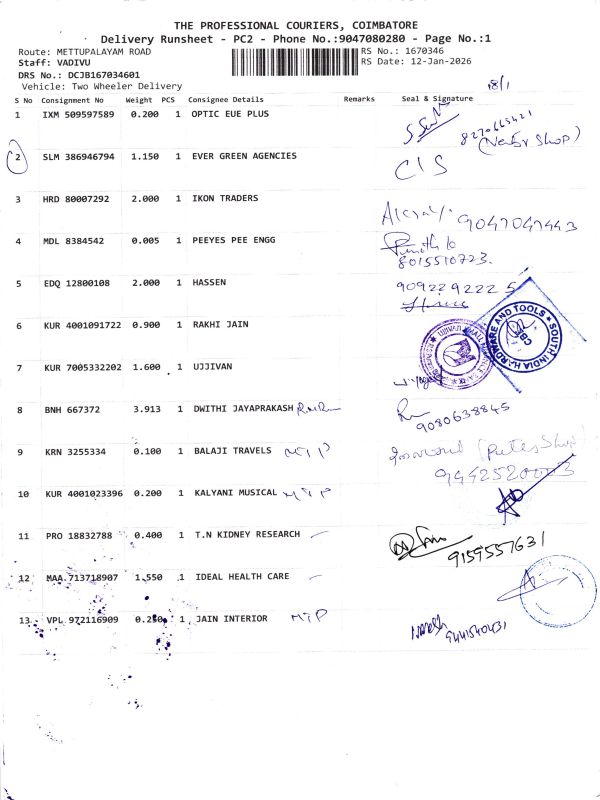 THE PROFESSIONAL COURIERS, COIMBATORE
Delivery Runsheet - PC2 - Phone No.:9047080280 - Page No.:1
Route: METTUPALAYAM ROAD RS No.: 1670346
Staff: VADIVU RS Date: 12-Jan-2026
DRS No.: DCJB167034601
Vehicle: Two Wheeler Delivery 18/1
S No Consignment No Weight PCS Consignee Details Remarks Seal & Signature
1 IXM 509597589 0.200 1 OPTIC EUE PLUS 8270665421
2 SLM 386946794 1.150 1 EVER GREEN AGENCIES CIS
3 HRD 80007292 2.000 1 IKON TRADERS 9047047443
4 MDL 8384542 0.005 1 PEEYES PEE ENGG
8015510723.
5 EDQ 12800108 2.000 1 HASSEN 9092292225
6 KUR 4001091722 0.900 1 RAKHI JAIN SOUTH INDIA HARDWARE AND TOOLS CBE
7 KUR 7005332202 1.600 1 UJJIVAN
8 BNH 667372 3.913 1 DWITHI JAYAPRAKASH
9080638845
9 KRN 3255334 0.100 1 BALAJI TRAVELS MTP
10 KUR 4001023396 0.200 1 KALYANI MUSICAL MTP
11 PRO 18832788 0.400 1 T.N KIDNEY RESEARCH 9159557631
12 MAA 713718907 1.550 1 IDEAL HEALTH CARE
13 VPL 972116909 0.250 1 JAIN INTERIOR MTP